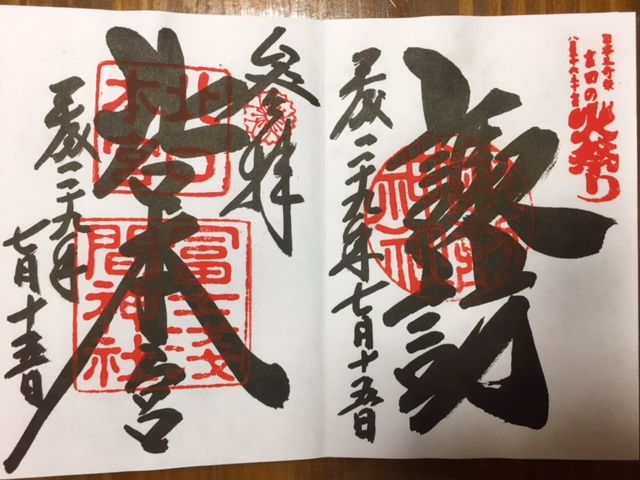 日本三奇祭
吉田の
火祭り
諏訪
平成二十九年七月十五日
参拝
北口本宮
北口
本宮
冨士浅
間神社
平成二十九年
七月十五日